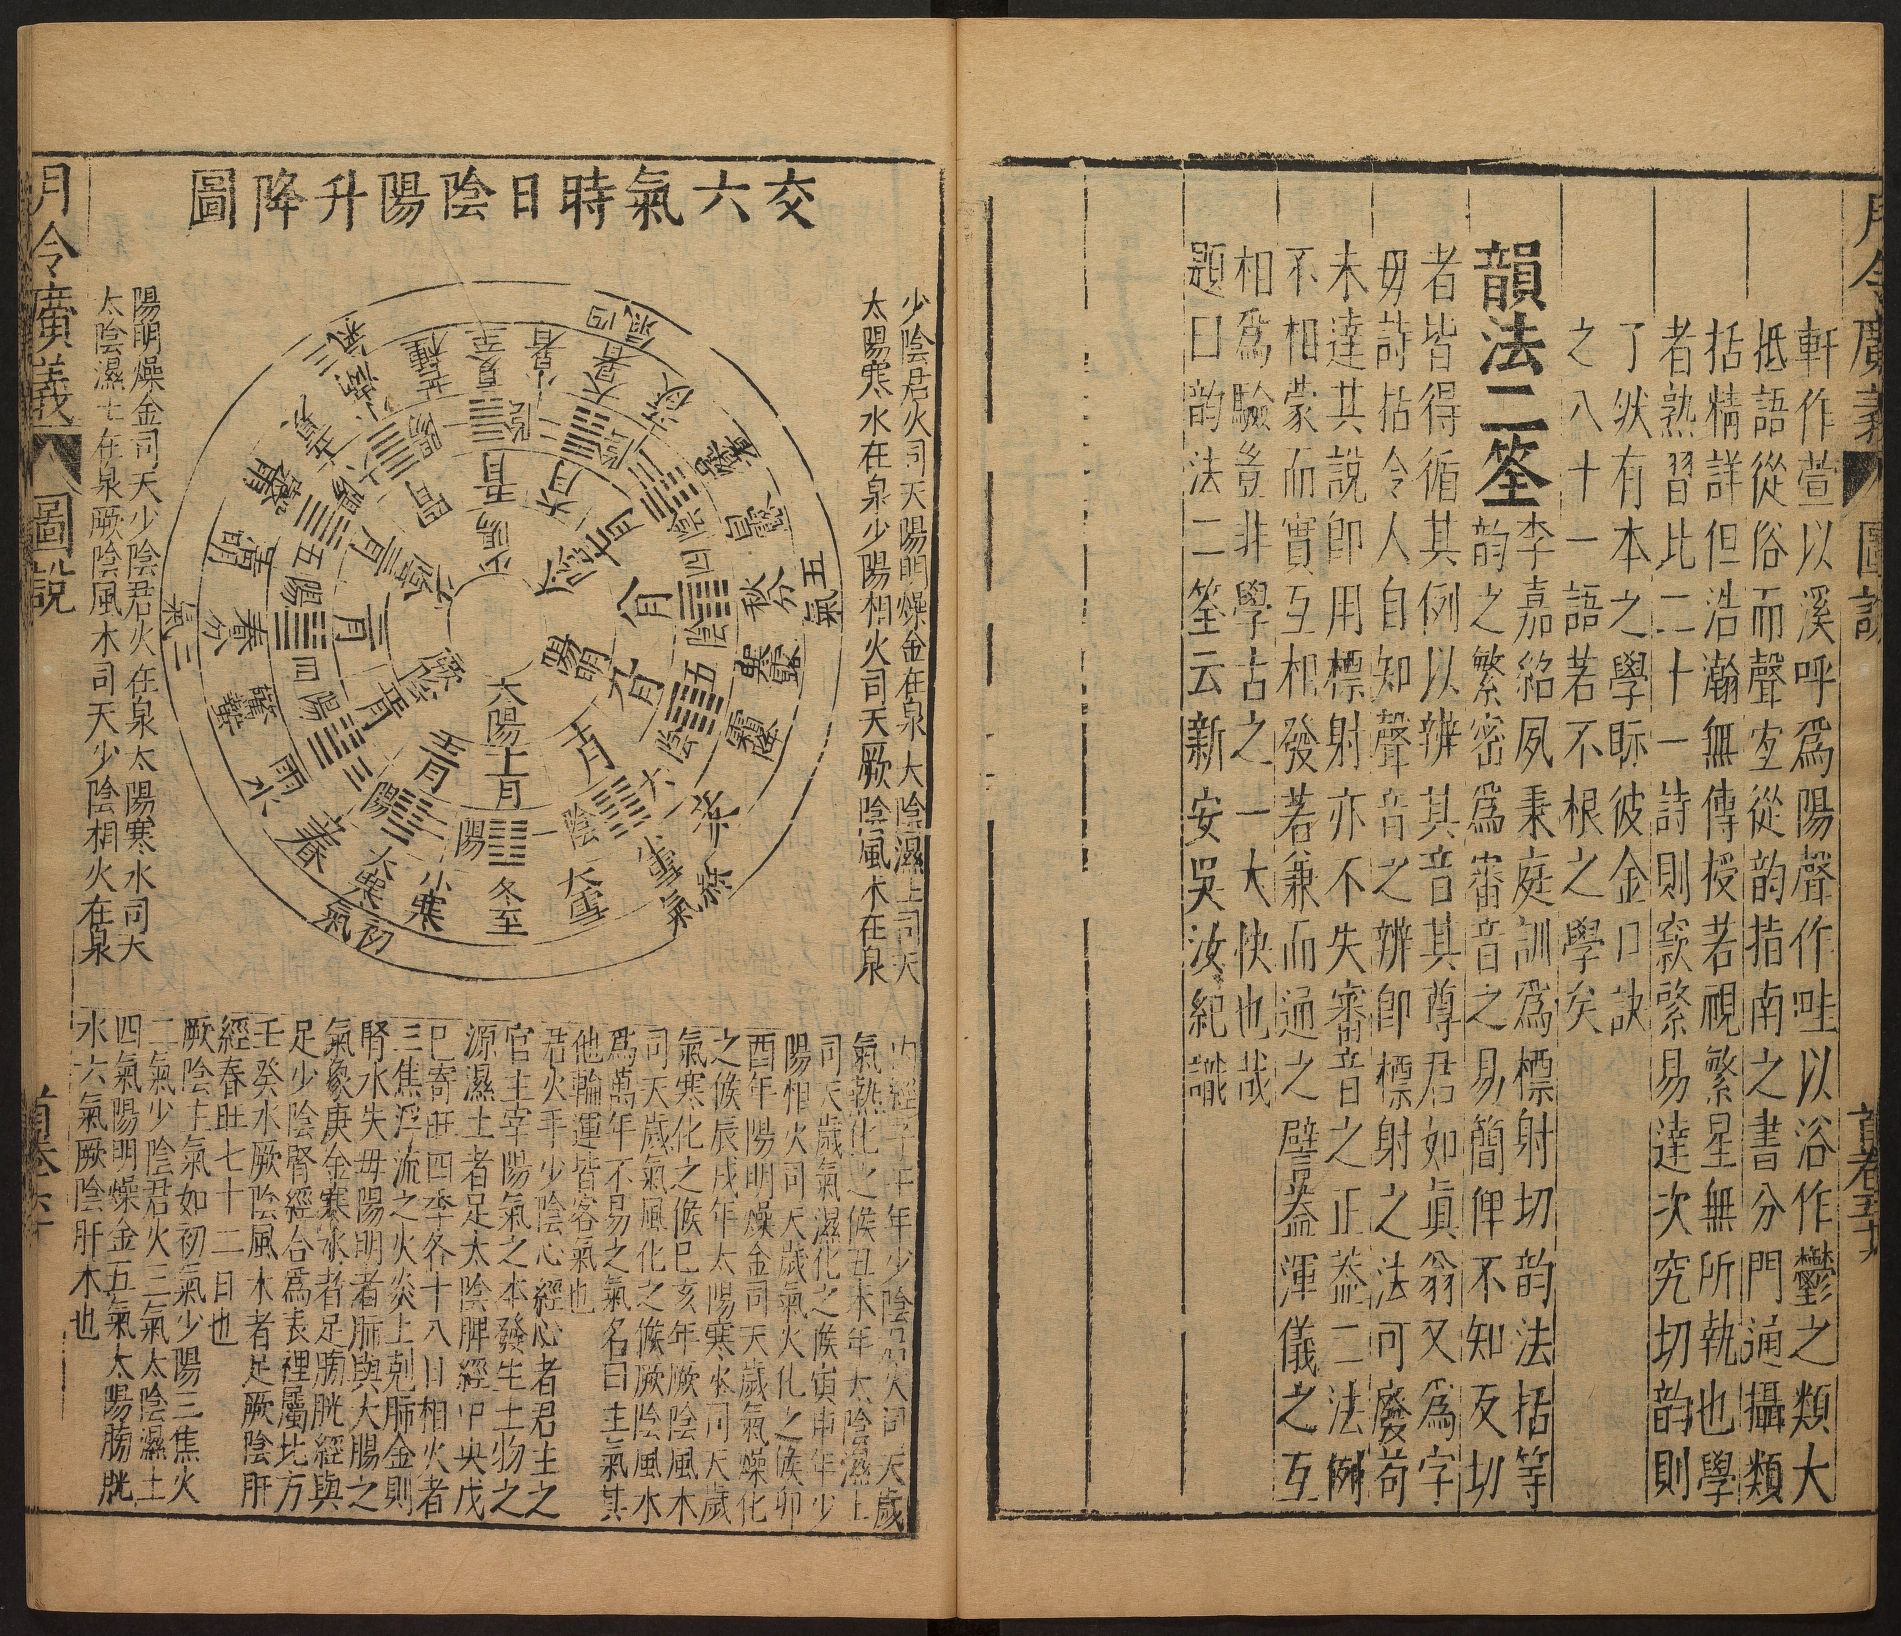 月令廣義 圖說
軒作萱以溪呼爲陽聲作哇以浴作鬱之類大
抵語從俗而聲宜從韵指南之書分門通攝類
括精詳但浩瀚無傳授若視繁星無所執也學
者熟習比二十一詩則窾綮易達次究切韵則
了然有本之學眎彼金口訣
之八十一語若不根之學矣
韻法二筌
李嘉紹夙秉庭訓爲標射切韵法括等
韵之繁密爲審音之易簡俾不知反切
者皆得循其例以辨其音其尊君如眞翁又爲字
毋詩拈令人自知聲音之辨卽標射之法可廢苟
未達其說卽用標射亦不失審音之正葢二法例
不相蒙而實互相發若兼而通之譬葢渾儀之互
相爲驗豈非學古之一大快也哉
題曰韵法二筌云新安吳汝紀識
交六氣時日陰陽升降圖
少陰君火司天陽明燥金在泉太陰濕土司天
太陽寒水在泉少陽相火司天厥陰風木在泉
五氣
秋分
寒露
八月
九月
陽明
太陽
十一月
冬至
小寒
大寒
初氣
雨水
春分
二月
三月
清明
夏至
小暑
大暑
四氣
六月
五月
少陽
陽明燥金司天少陰君火在泉太陽寒水司天
太陰濕土在泉厥陰風木司天少陰相火在泉
內經子午年少陰君火司天歲
氣熱化之候丑未年太陰濕土
司天歲氣濕化之候寅申年少
陽相火司天歲氣火化之候卯
酉年陽明燥金司天歲氣燥化
之候辰戌年太陽寒水司天歲
氣寒化之候巳亥年厥陰風木
司天歲氣風化之候厥陰風水
爲萬年不易之氣名曰主氣其
他輪運皆客氣也
君火手少陰心經心者君主之
官主宰陽氣之本發生土物之
源濕土者足太陰脾經中央戊
巳寄旺四季各十八日相火者
三焦浮流之火炎上剋肺金則
腎水失毋陽明者肺與大腸之
氣象庚金寒水者足膀胱經與
足少陰腎經合爲表裡屬北方
壬癸水厥陰風木者足厥陰肝
經春旺七十二日也
厥陰主氣如初氣少陽三焦火
二氣少陰君火三氣太陰濕土
四氣陽明燥金五氣太陽膀胱
水六氣厥陰肝木也
月令廣義 圖說 首卷